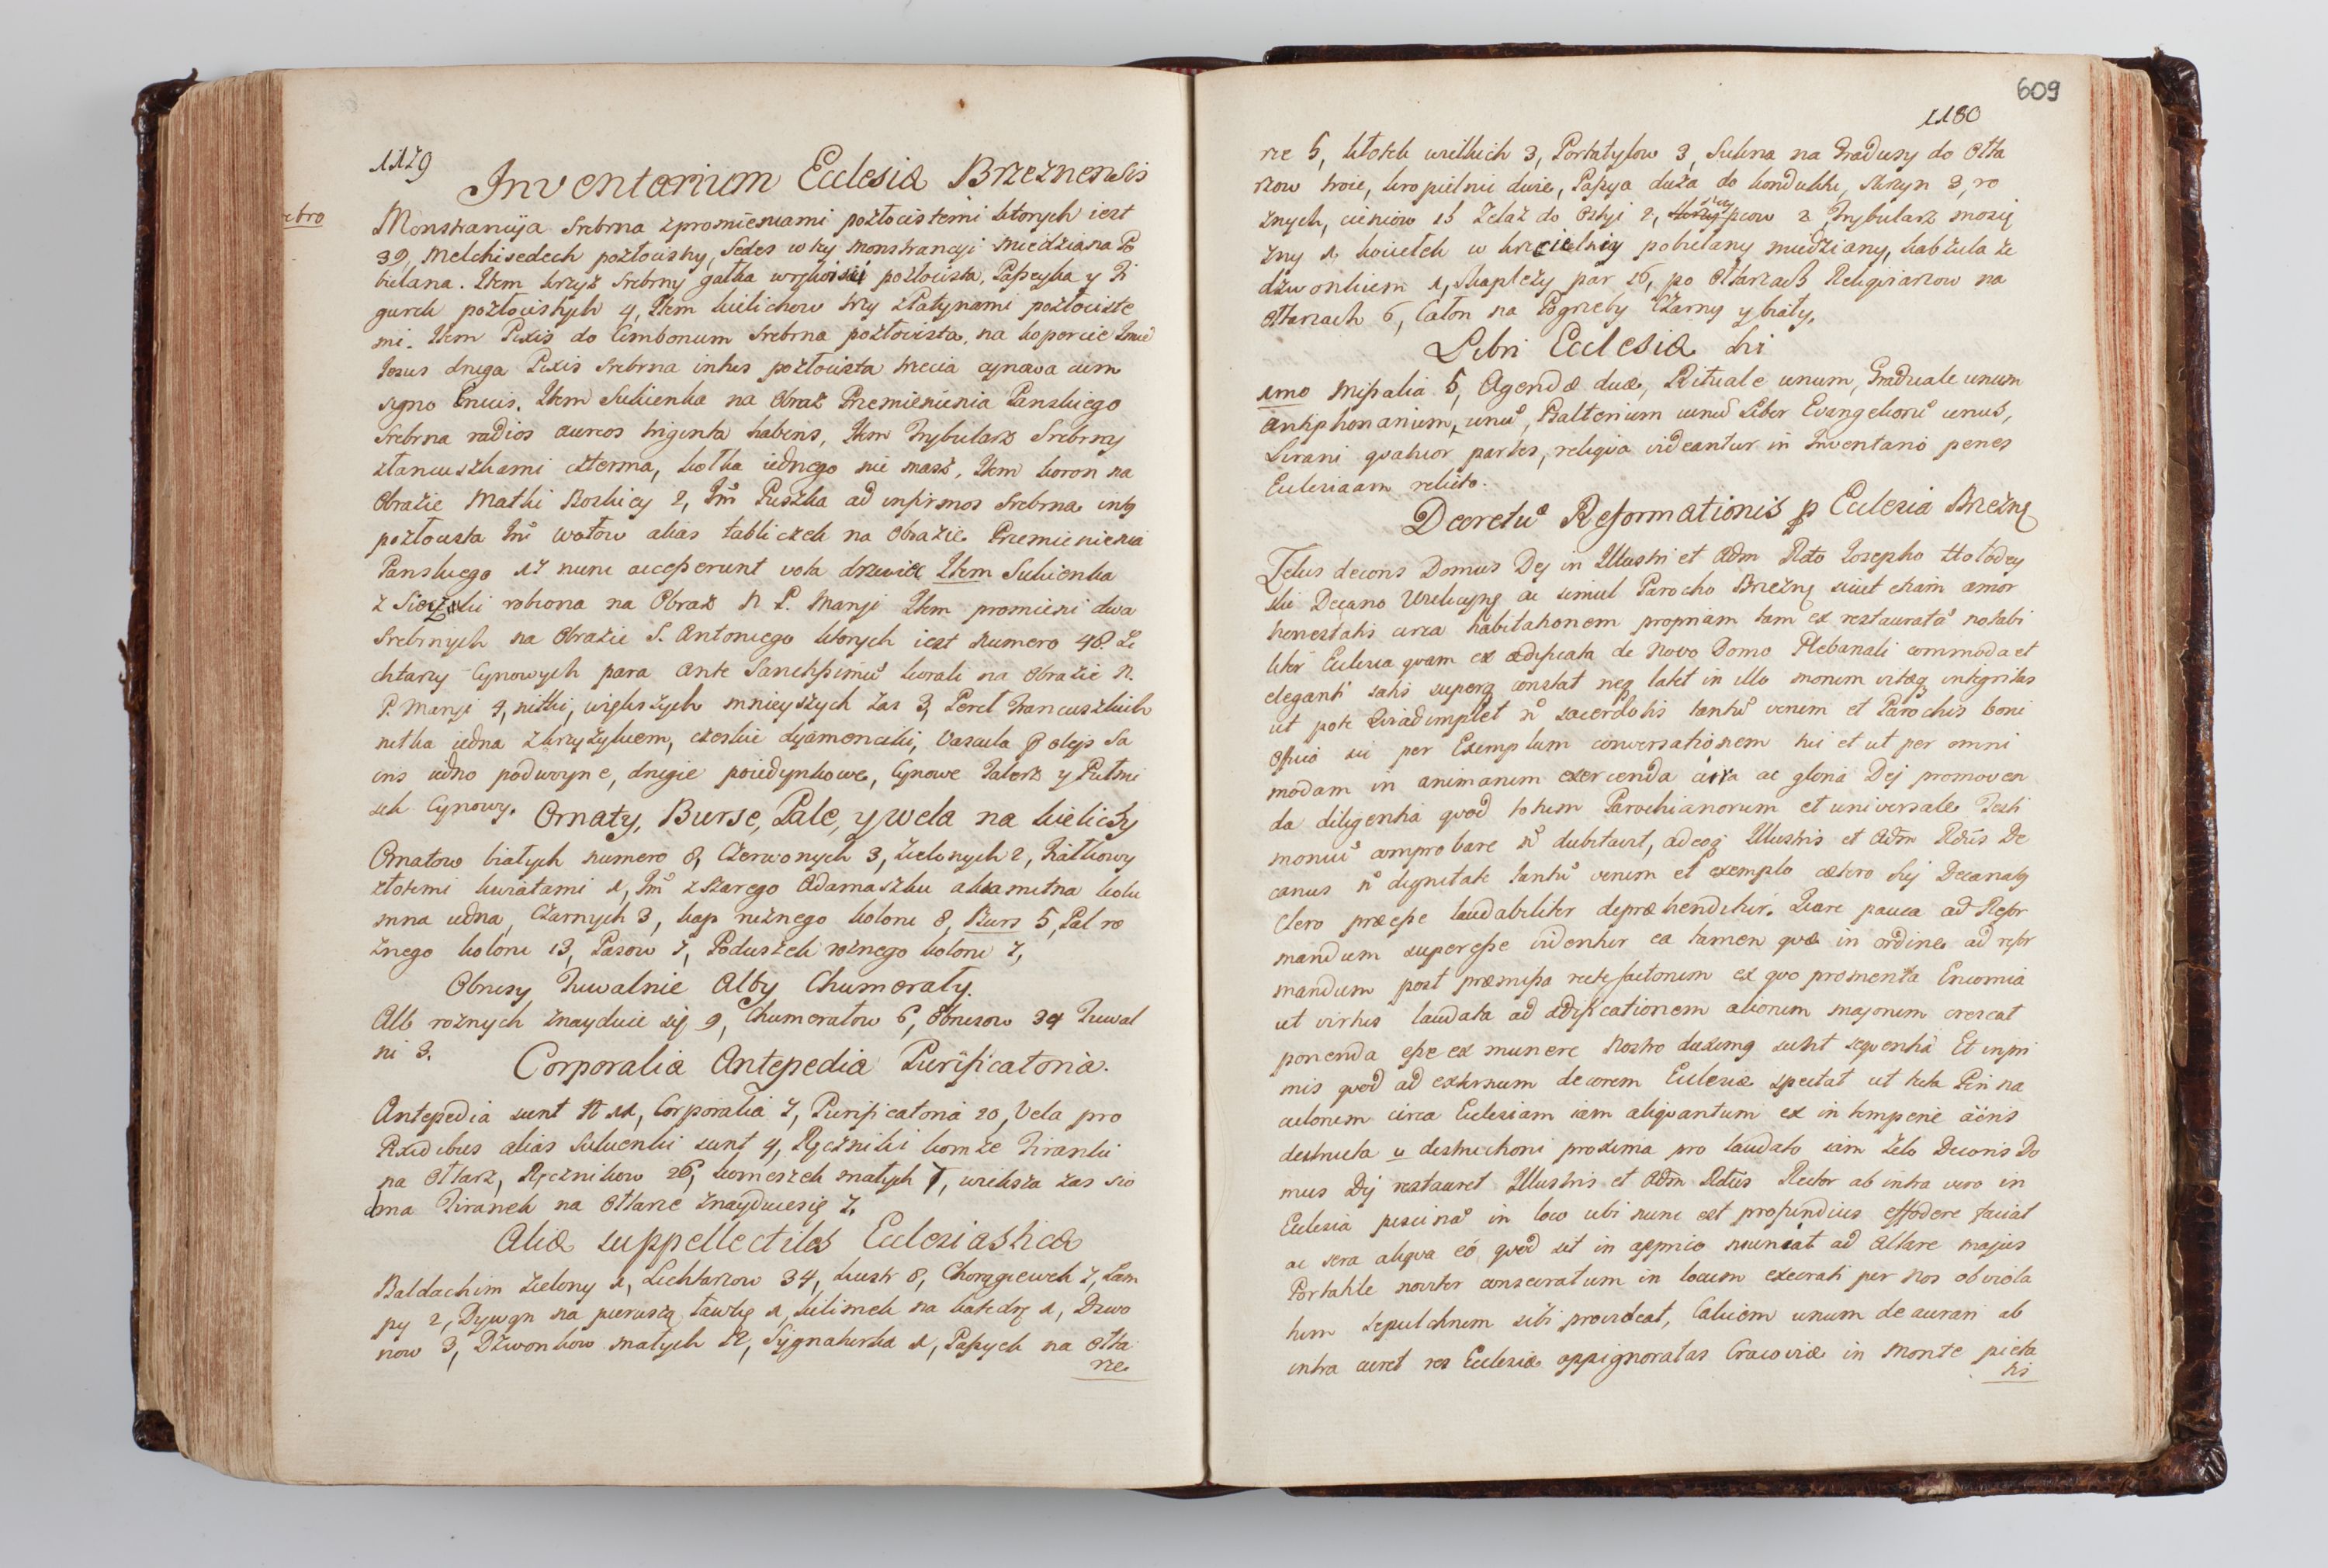 1179
Inventarium Ecclesiæ Brzeznensis
Monstrancÿja Srebrna zpromieniami pozłocistemi ktorych iest
39, Melchisedech pozłocisty, Sedes w tey monstrancyi miedziana Po
bielana. Item krzyż Srebrny gałka pozłocista, Passyyka y Fi
gurek pozłocistych 4, Item kielichow trzy zPatynami pozłociste
mi. Item Pixis do Cimbonum Srebrna pozłocista, na kopercie Imie
Jesus druga Pixis Srebrna intus pozłocista trzecia cynowa cum
signo Crucis. Item Sukienka na Obraz Przemienienia Panskiego
Srebrna radios aureos triginta habens, Item Trybularz Srebrny
złancuszkami czterma, kołka iednego nie masz, Item koron na
Obrazie Matki Boskiey 2, Itm Puszka ad infirmos Srebrna intus
pozłocista Itm wotow alias tabliczek na Obrazie Przemienienia
Panskiego 17 nunc accesserunt vota Item Sukienka
z robiona na Obraz N P. Maryi Item promieni dwa
Srebrnych na Obrazie S. Antoniego ktorych iest Numero 48. Li
chtarzy Cynowych para ante Sanctissimum korali na Obrazie N.
P. Maryi 4, nitki, większych mnieyszych zas 3, Pereł Francuskich
nitka iedna zkrzyżykiem, czeskie dyamenciki, Vascula p olejs Sa
cris iedno podwoyne, drugie poiedynkowe, Cynowe Talerz y Pułmi
sek Cynowy. Ornaty, Burse, Pale, y wela na kielichy
Ornatow białych numero 8, Czerwonych 3, Zielonych 2, Fiałkowy
złotemi kwiatami 1, Itm zszarego Adamaszku aksamitna kolu
mna iedna, Czarnych 3, kap roznego koloru 8, Burs 5, Pal ro
znego koloru 13, Pasow 7, Poduszek roznego koloru 7,
Obrusy Tuwalnie Alby Humeraly.
Alb roznych znayduie się 9, Humerałow 6, Obrusow 34 Tuwal
ni 3. Corporalia Antepedia Purificatoria.
Antepedia sunt N 11, Corporalia 7, Purificatoria 20, Vela pro
Pixidibus alias Sukienki sunt 4, Ręczniki komże Firanki
na Ołtarz, Ręcznikow 26, komeszek małych 7, większa zas sio
dma Firanek na Ołtarze znayduiesię 7.
Aliæ suppellectiles Ecclesiasticæ
Baldachim Zielony 1, Lichtarzow 34, Lustr 8, Chorągiewek 7, Lam
py 2, Dywan na pierwszą ławkę 1, kilimek na katedrę 1, Dzwo
now 3, Dzwonkow małych 12, Sygnaturka 1, Passyek na Ołta
rze
609
1180
rze 5, wielkich 3, Portatylow 3, Sukna na Gradusy do Ołta
rzow troie, kropielnice dwie, Passya duża do konduktu, Skrzyn 3, ro
znych, 15 Zelaz do Ostyi 2, 2 Trybularz mosię
zny 1, kociełek w krzcielnicy pobielany miedziany, kabzula ze
dzwonkiem 1, par 16, po Ołtarzach Religiarzow na
Ołtarzach 6, Całon na Pogrzeby Czarny y biały,
Libri Ecclesiæ hi
1mo Missalia 5, Agendæ duæ, Rituale unum, Graduale unum
Antiphonarium, unũ Psalterium unũ Liber Evangeliorũ unus,
Lirani quatuor partes, reliqua videantur in Inventario penes
Ecclesiaam relicto.
Decretũ Reformationis p Ecclesia Brzezn
Zelus decoris Domus Dej in Illustri et Adm Rdo Josepho Hołodey
ski Decano Wielicyng ac simul Parocho Brzezng sicut etiam amor
honestatis circa habitationem propriam tam ex restauratã notabi
liter Ecclesia quam ex ædificata de novo Domo Plebanali commoda et
eleganti satis superq constat neq latet in illo morum vitæq integritas
ut pote Qui adimplet nõ sacerdotis tantũ verum et Parochis boni
Officio sui per Exemplum conversationem sui et ut per omni
modam in animarum exercenda cura ac gloria Dej promoven
da diligentia quod totum Parochianorum et universale Testi
moniũ comprobare nõ dubitavit, adeoq Illustris et Adm Rdus De
canus nõ dignitate tantũ verum et exemplo cætero hij Decanatg
Clero præesse laudabiliter deprehenditur. Quare pauca ad Refor
mandum superesse videntur ea tamen quæ in ordine ad refor
mandum post præmissa recte factorum ex quo promerita Encomia
ut virtus laudata ad ædificationem aliorum majorum crescat
ponenda esse ex munere Nostro duximg sunt sequentia Et inpri
mis quod ad externum decorem Ecclesiæ spectat ut tecta Pin na
culorum circa Ecclesiam iam aliquantum ex intemperie aeris
destructa u destructioni proxima pro laudato iam Zelo Decoris Do
mus Dej restauret Illustris et Adm Rdus Rector ab intra vero in
Ecclesia piscinã in loco ubi nunc est profundius effodere faciat
ac sera aliqua eo, quod sit in muniat ad Altare majus
Portatile noviter consecratum in locum execrati per nos ob viola
tum sepulchrum sibi provideat, Calicem unum deaurari ab
intra curet res Ecclesiæ appignoratas Cracoviæ in Monte pieta
tis